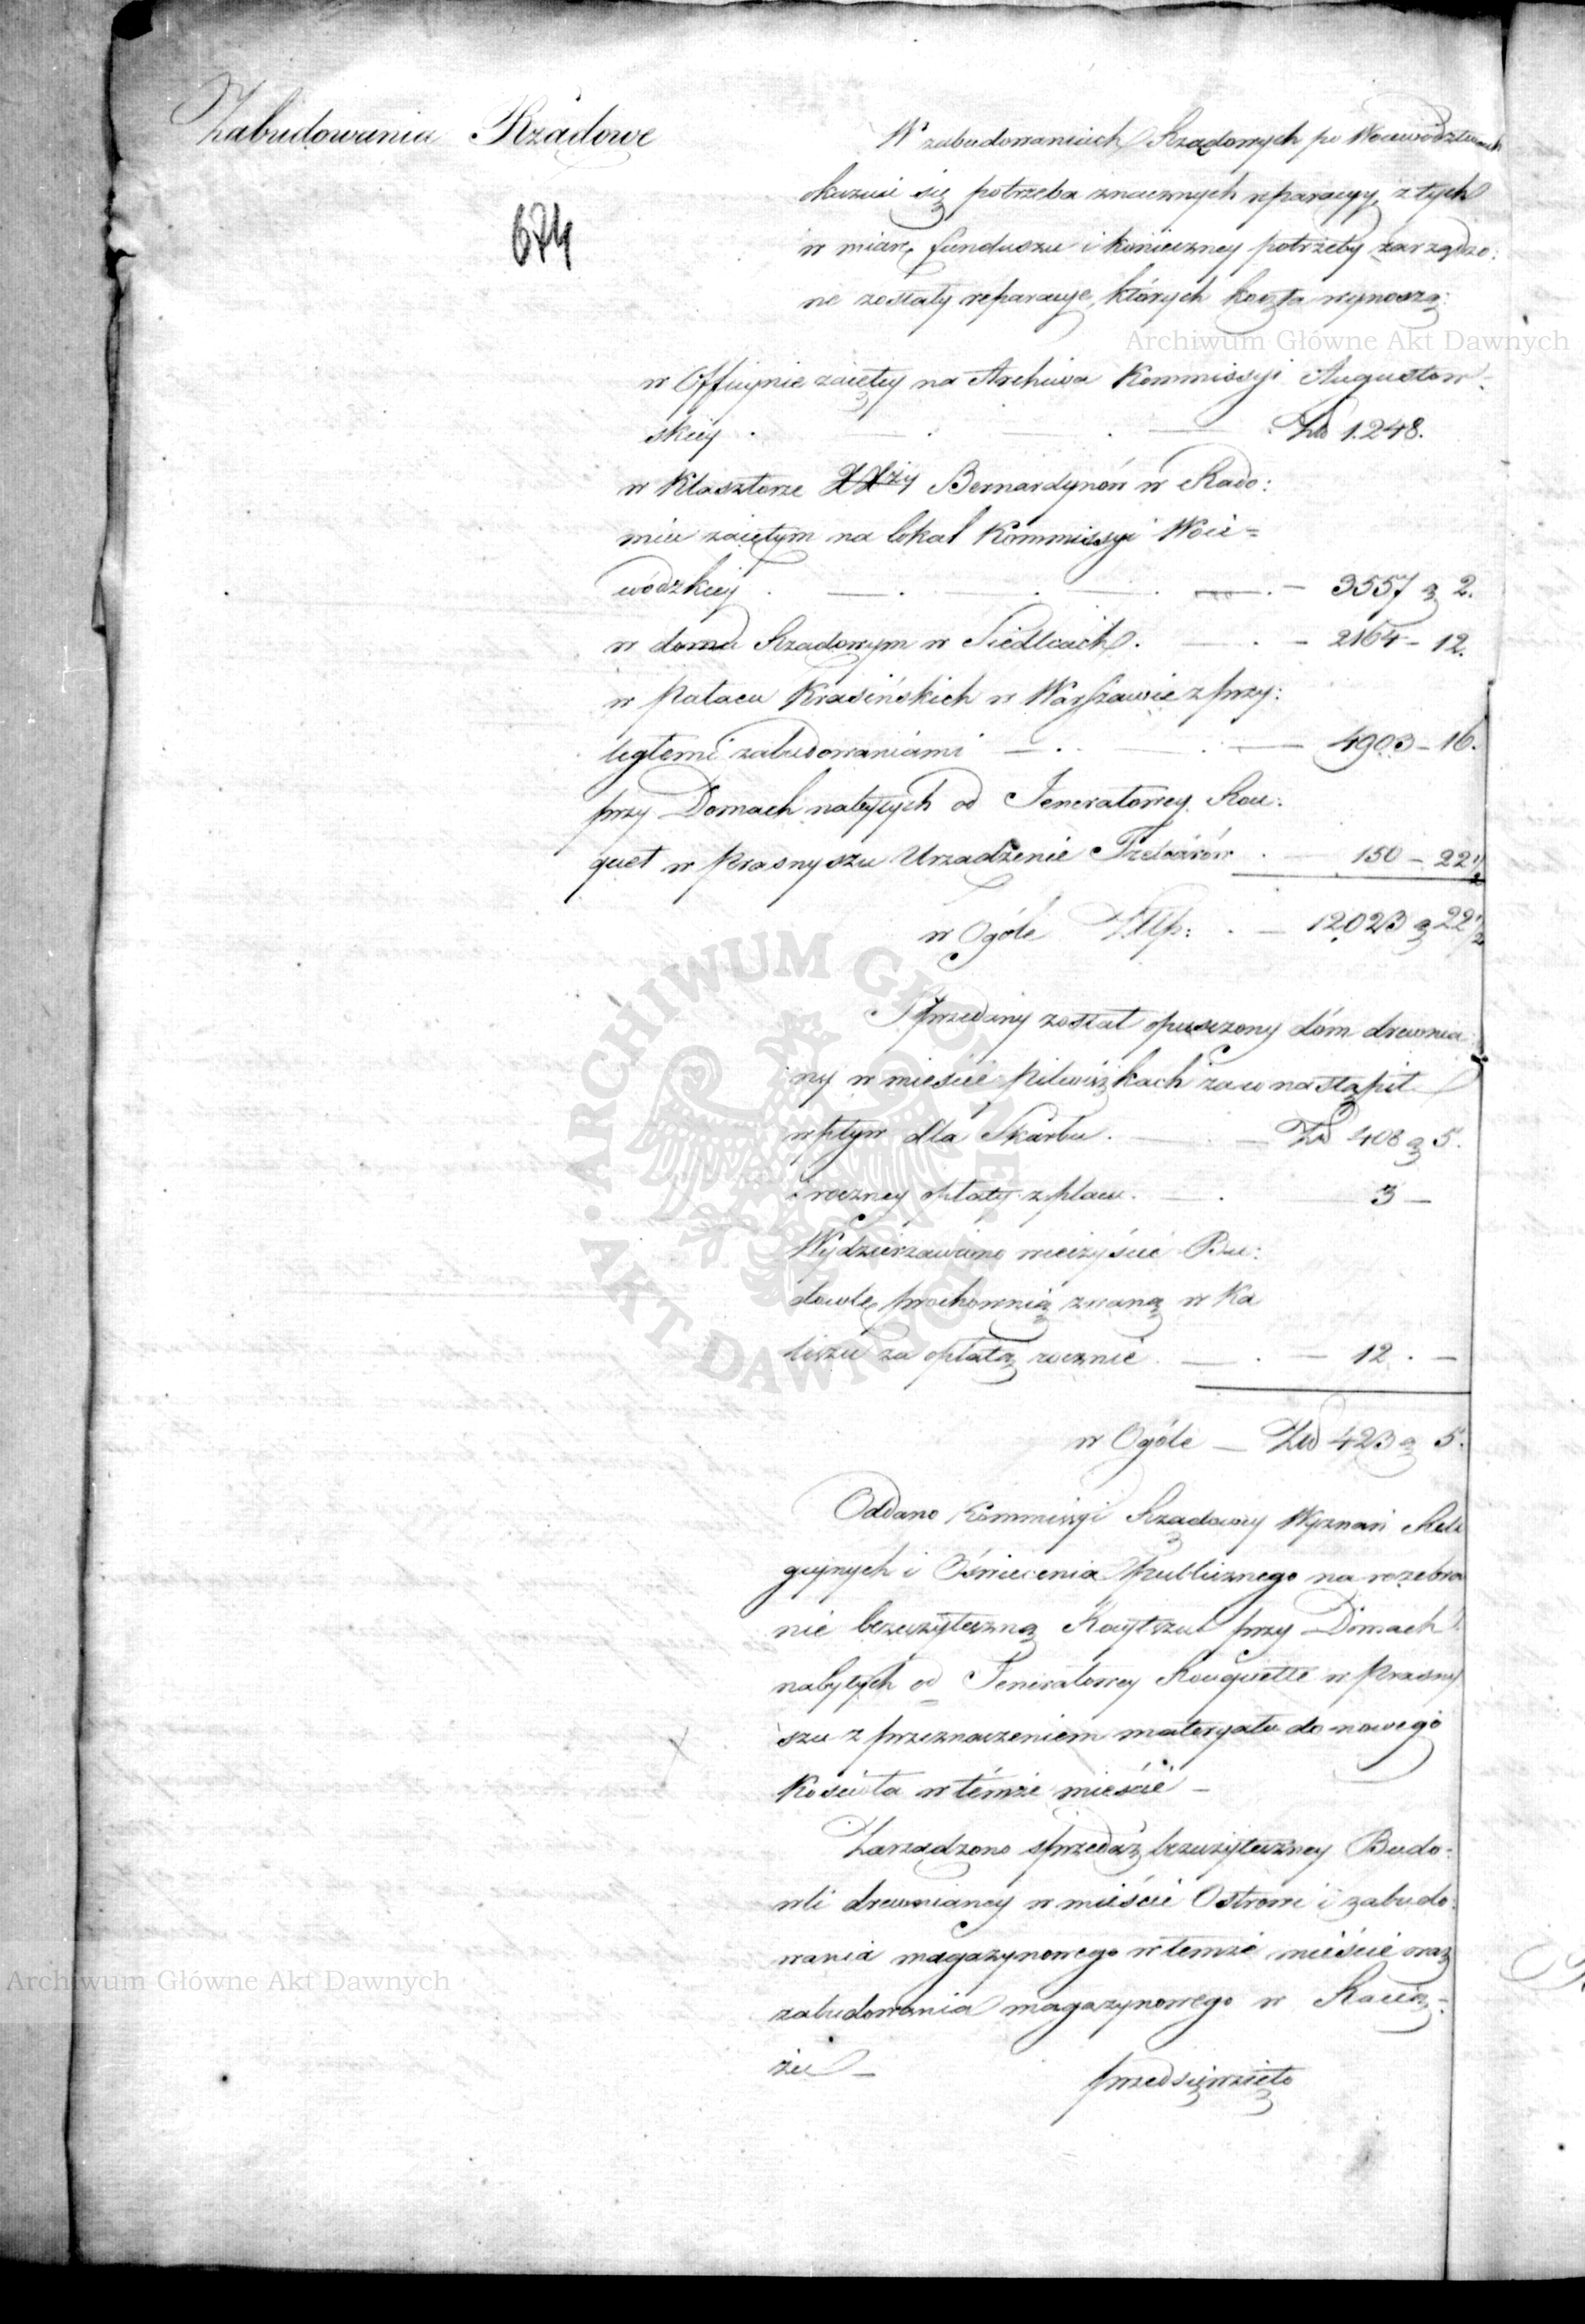 Zabudowania Rządowe
674
W zabudowaniach Rządowych po Woiewództwach
okazuie się potrzeba znacznych reparacyy, z tych
w miarę funduszu i konieczney potrzeby zarządzo:
ne zostały reparacye, których koszta wynoszą:
Archiwum Główne Akt Dawnych
w Officynie zaiętey na Archiwa Kommissyi Augustow-
skiey . — . — . — Zł 1.248.
w Klasztorze XXży Bernardynów w Rado:
miu zaiętym na lokal Kommissyi Woie=
wódzkiey . — . — . — . — 3557 g 2.
w domu Rządowym w Siedlcach . — . — 2164 - 12.
w Pałacu Krasińskich w Warszawie z przy:
ległemi zabudowaniami — . — . — 4903 - 16.
przy Domach nabytych od Jenerałowey Rou:
quet w Prasnyszu Urządzenie . — 150 - 22½
w Ogóle Złłp: . — 12.023 g 22½
Sprzedany został opuszczony dóm drewnia
ny w mieście Pilwiszkach za co nastąpił
wpływ dla Skarbu . — . — Zł 408 g 5.
i roczney opłaty z placu . — . 3 —
Wydzierzawiono wieczyście Bu:
dowlę prochownią zwaną w Ka
liszu za opłatą rocznie . — . — 12 . —
w Ogóle — Zł 423 g 5.
Oddano Kommissyi Rządowey Wyznań Reli
giynych i Oświecenia Publicznego na rozebra
nie bezużyteczną Raytszul przy Domach
nabytych od Jenerałowey Rouquette w Prasny
szu z przeznaczeniem materyału do nowego
Kościoła w témże mieście —
Zarządzono sprzedaż bezużyteczney Budo-
wli drewnianey w mieście Ostrowi i zabudo:
wania magazynowego w temże mieście oraz
Archiwum Główne Akt Dawnych
zabudowania magazynowego w Raciąż-
żu —
przedsięwzięto
ARCHIWUM GŁÓWNE • AKT DAWNYCH •